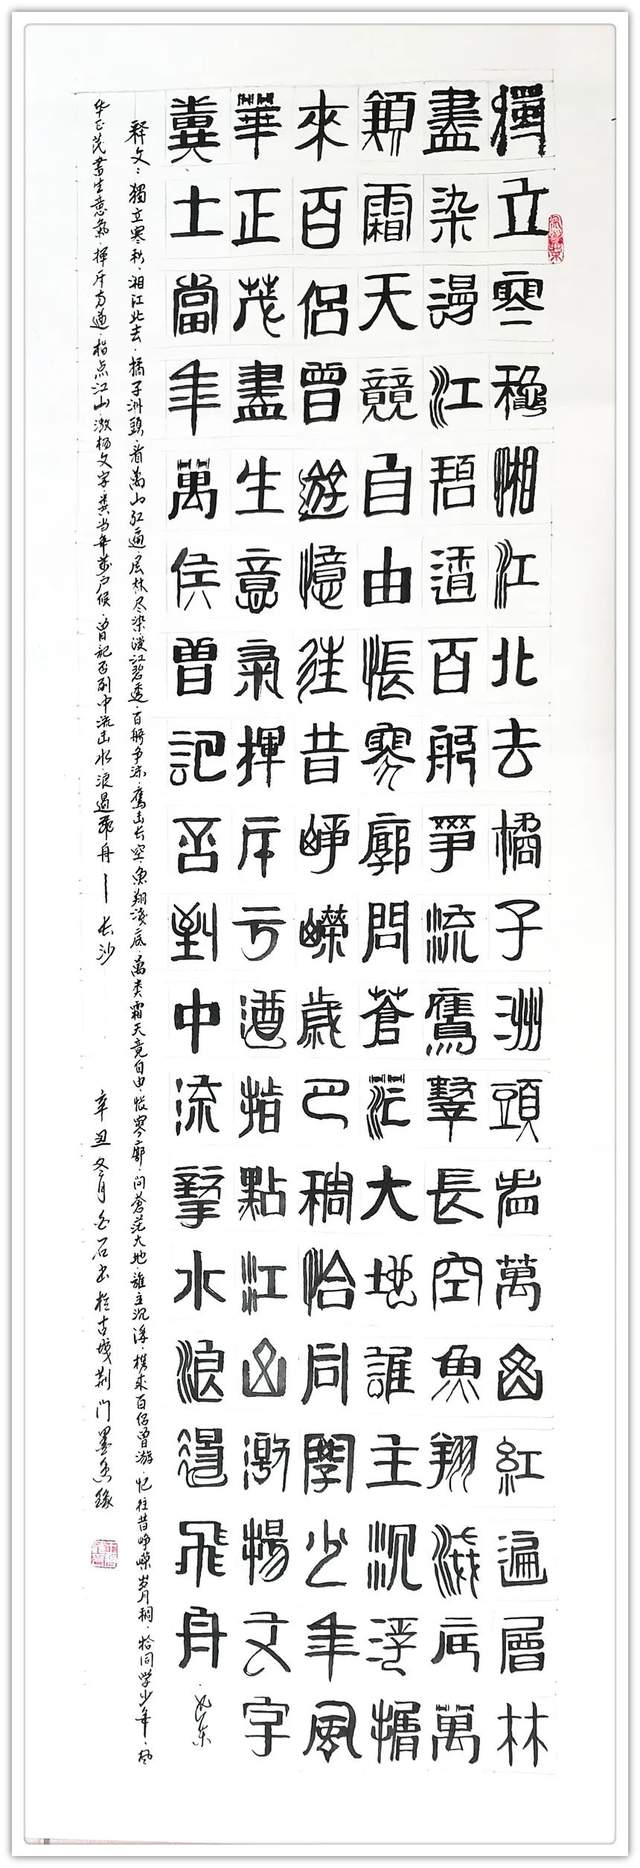 獨立寒穐湘江北去橘子洲頭看萬山紅遍層林
盡染漫江碧透百舸爭流鷹擊長空魚翔淺底萬
類霜天競自由悵寥廓問蒼茫大地誰主沉浮攜
來百侶曾遊憶往昔崢嶸歲月稠恰同學少年風
華正茂書生意氣揮斥方遒指點江山激揚文字
糞土當年萬侯曾記否到中流擊水浪遏飛舟
释文：獨立寒秋.湘江北去.橘子洲頭.看萬山红遍.层林尽染.漫江碧透.百舸争流.鹰击长空.鱼翔浅底.萬类霜天竞自由.怅寥廓.问蒼茫大地.谁主沉浮.携来百侣曾游.忆往昔峥嵘岁月稠.恰同学少年.风
华正茂書生意氣.挥斥方遒.指点江山.激扬文字.粪土当年萬户候.曾记否到中流击水.浪遏飛舟—长沙
辛丑冬月白石书於古城荆门墨香缘